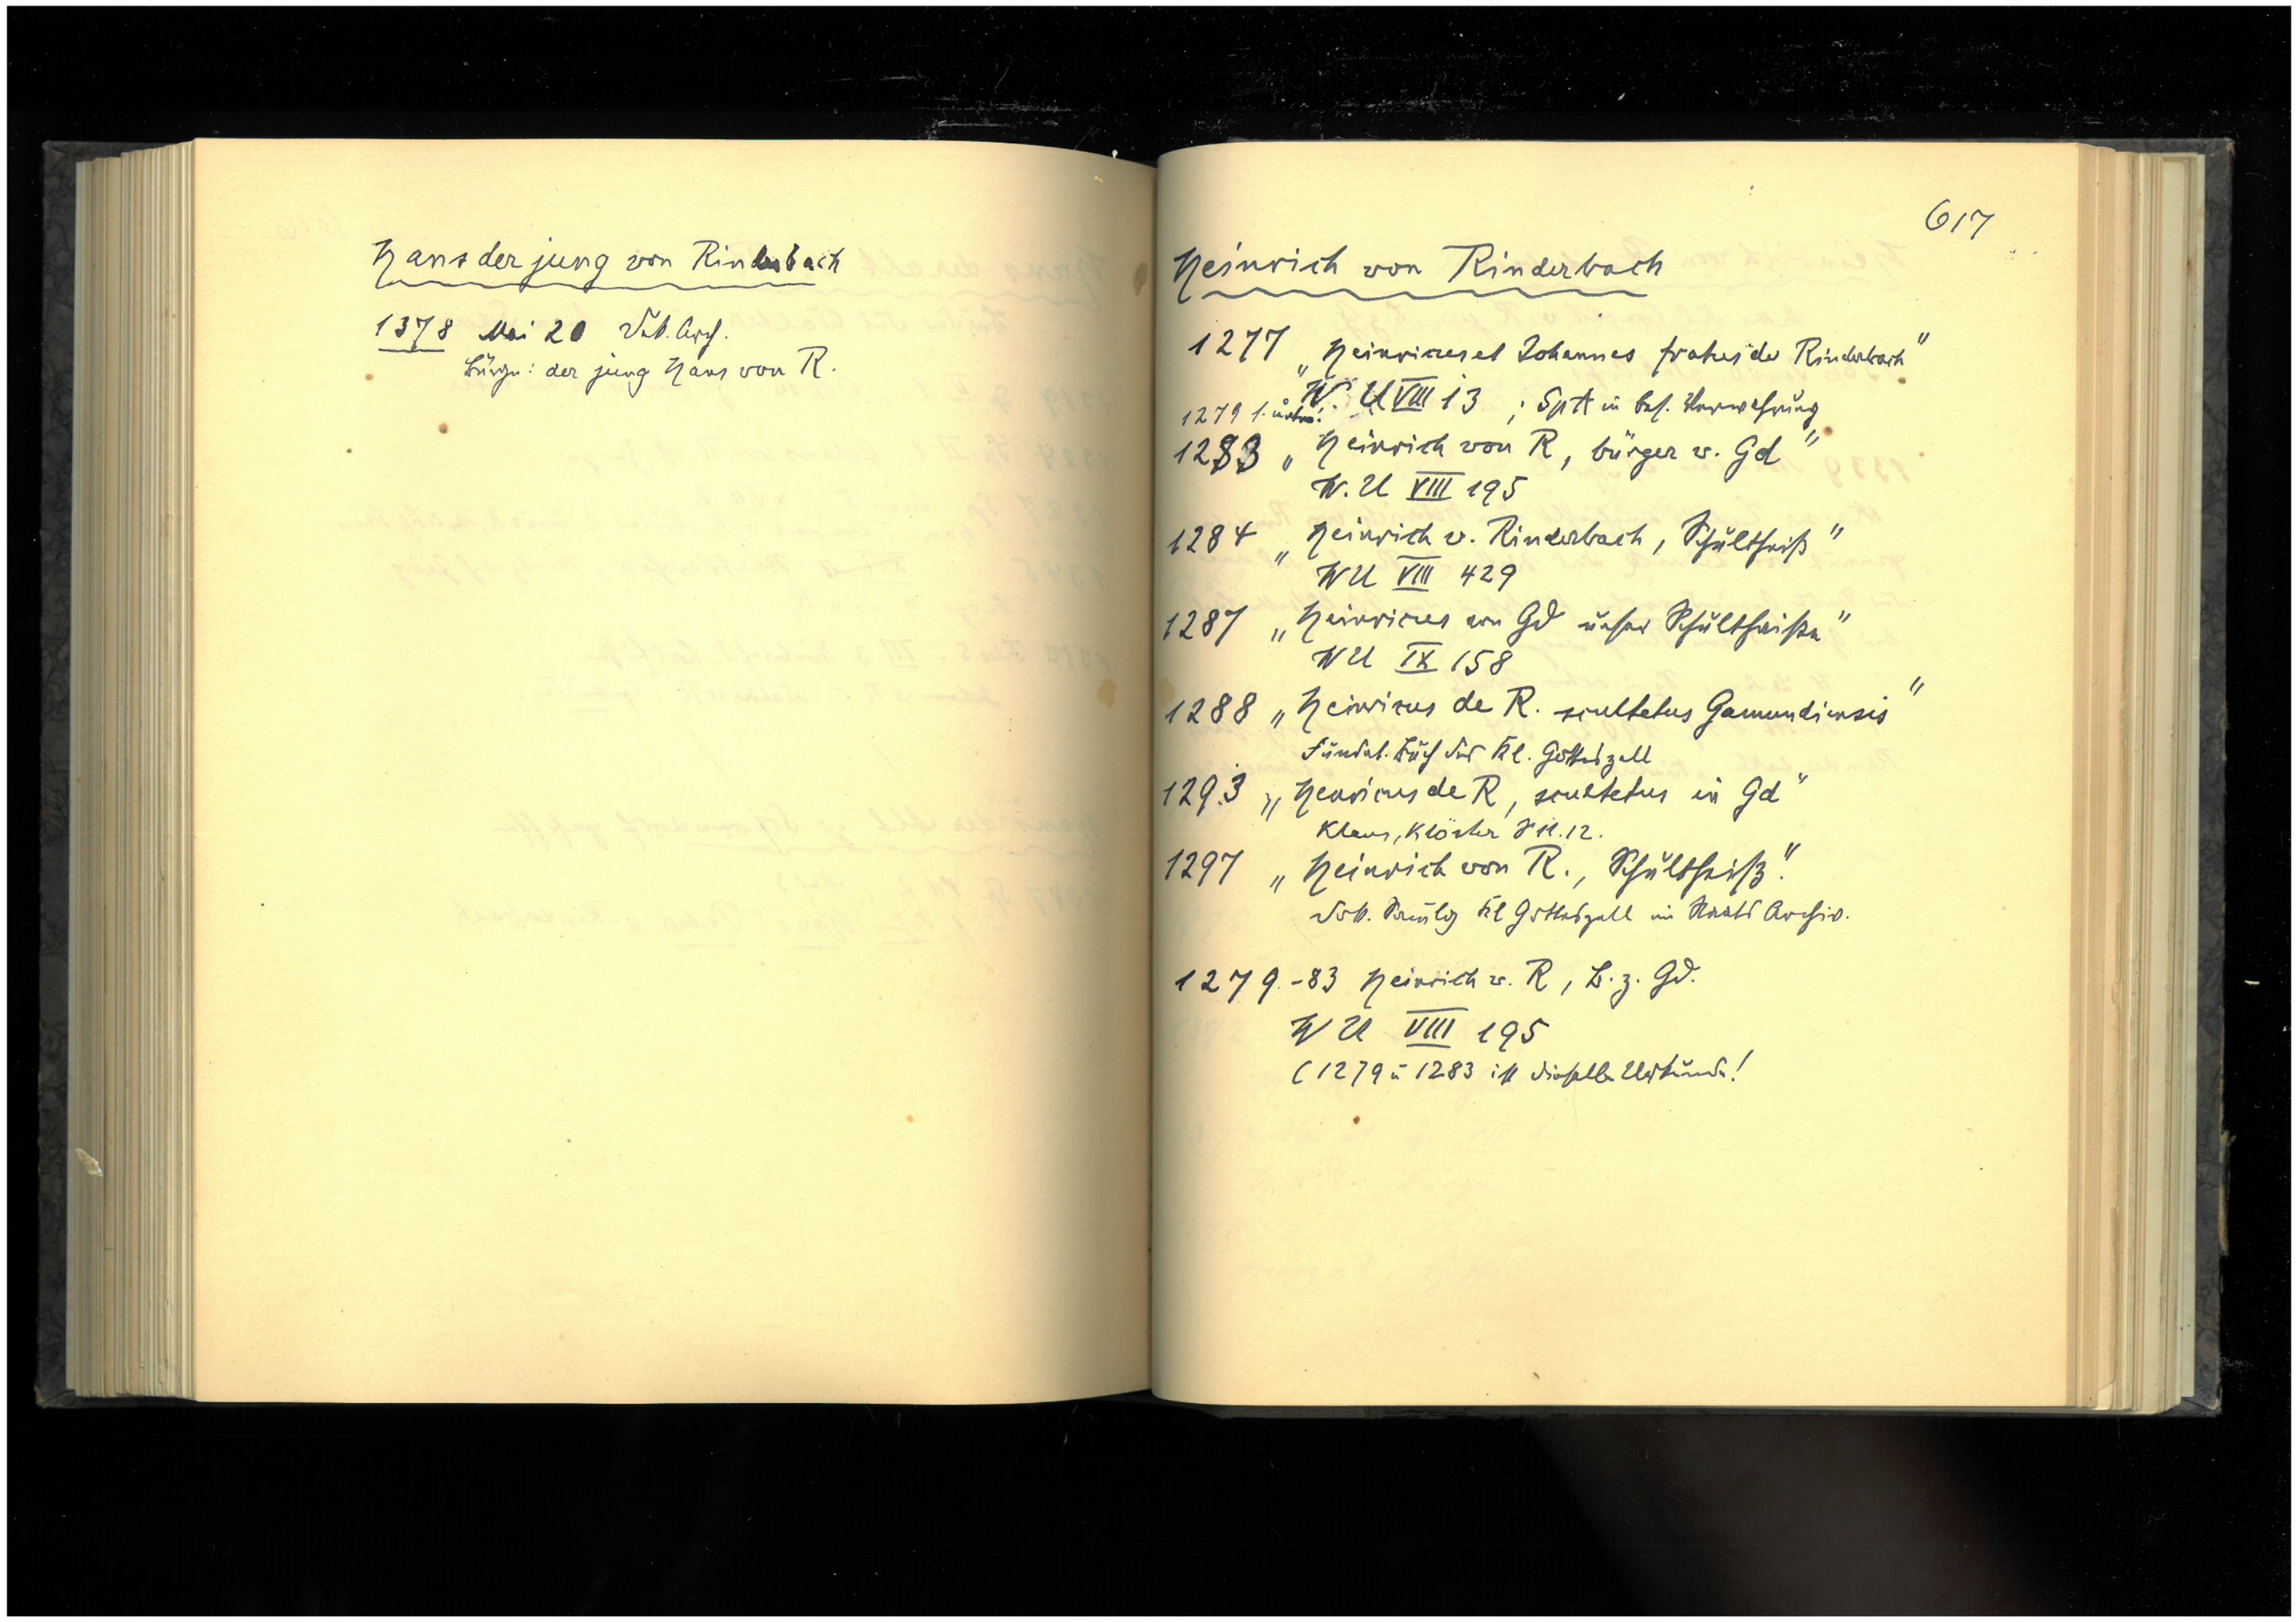 Hans der jung von Rinderbach
1378 Mai 20 Kath. Arch.
Bürge: der jung Hans von R.
617
Heinrich von Rinderbach
1277 „Heinricus et Johannes fratres de Rinderbach"
W. U VIII 13 ; SpA in bes. Verwahrung
1279 s. unten!
1283 „Heinrich von R, bürger v. Gd"
W. U VIII 195
1284 „Heinrich v. Rinderbach, Schultheiß"
WU VIII 429
1287 „Heinricus von Gd unser Schultheiße"
WU IX 158
1288 „Heinricus de R. scultetus Gamundiensis"
Fundat. Buch des Kl. Gotteszell
1293 „Henricus de R, scultetus in Gd"
Klaus, Klöster S 11. 12.
1297 „Heinrich von R., Schultheiß".
Kl Gotteszell im Staats Archiv.
1279-83 Heinrich v. R, B. z. Gd.
W U VIII 195
(1279 u 1283 ist dieselbe Urkunde!